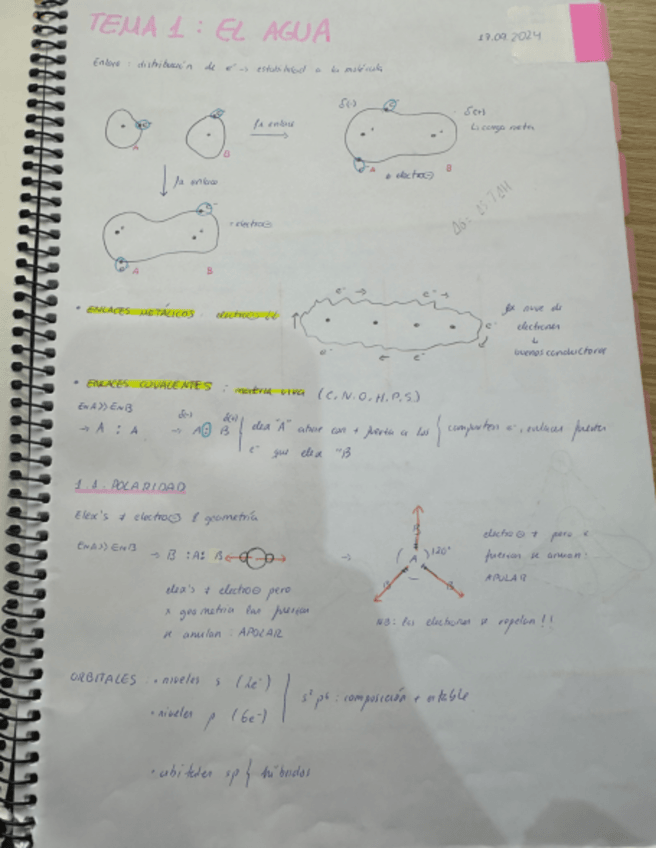 TEMA 1 : EL AGUA
17.09.2024
Enlace : distribución de e⁻ → estabilidad a la molécula
fx enlace
δ(-)
δ(+)
↳ carga neta
A
B
A
B
fx enlace
A
B
• ENLACES METÁLICOS :
e⁻ →
e⁻ →
e⁻
e⁻
e⁻
e⁻
fx nube de
electrones
↓
buenos conductores
• ENLACES COVALENTES : materia viva (C, N, O, H, P, S)
EnA >> EnB
→ A : A → A : B
δ(-) δ(+)
elex "A" atrae con + fuerza a los
e⁻ que elex "B
comparten e⁻, enlaces fuertes
1.1. POLARIDAD
Elex's ≠ electro⊖ & geometría
EnA >> EnB → B : A : B →
elex's ≠ electro⊖ pero
x geometría las fuerzas
se anulan : APOLAR
B
A
120°
B
B
electro⊖ ≠ pero
fuerzas se anulan:
APOLAR
NB: los electrones se repelan !!
ORBITALES : • niveles s (2e⁻)
• niveles p (6e⁻)
s² p⁶ : composición + estable
• orbitales sp { híbridos